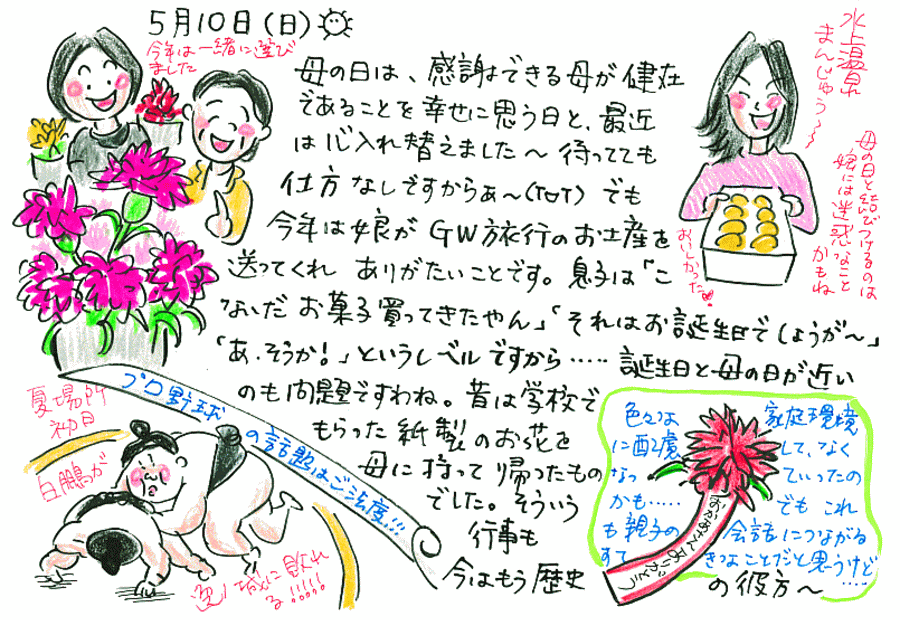 5月10日(日)
今年は一緒に選び
ました
母の日は、感謝できる母が健在
であることを幸せに思う日と、最近
は心入れ替えました～待ってても
仕方なしですからぁ～(ToT) でも
今年は娘がGW旅行のお土産を
送ってくれ ありがたいことです。息子は「こ
ないだ お菓子買ってきたやん」「それはお誕生日でしょうが～」
「あ、そうか!」というレベルですから…… 誕生日と母の日が近い
のも問題ですわね。昔は学校で
もらった紙製のお花を
母に持って帰ったもの
でした。そういう
行事も
今はもう歴史
の彼方～
水上温泉
まんじゅう～～
母の日と結びつけるのは
娘には迷惑なこと
かもね
おいしかった
プロ野球の話題はご法度!!!
夏場所
初日
白鵬が
逸ノ城に敗れ
る!!!!!
色々な 家庭環境
に配慮 して、なく
なっ ていったの
かも…… でも これ
も親子の 会話につながる
すて きなことだと思うけど
……
おかあさんありがとう